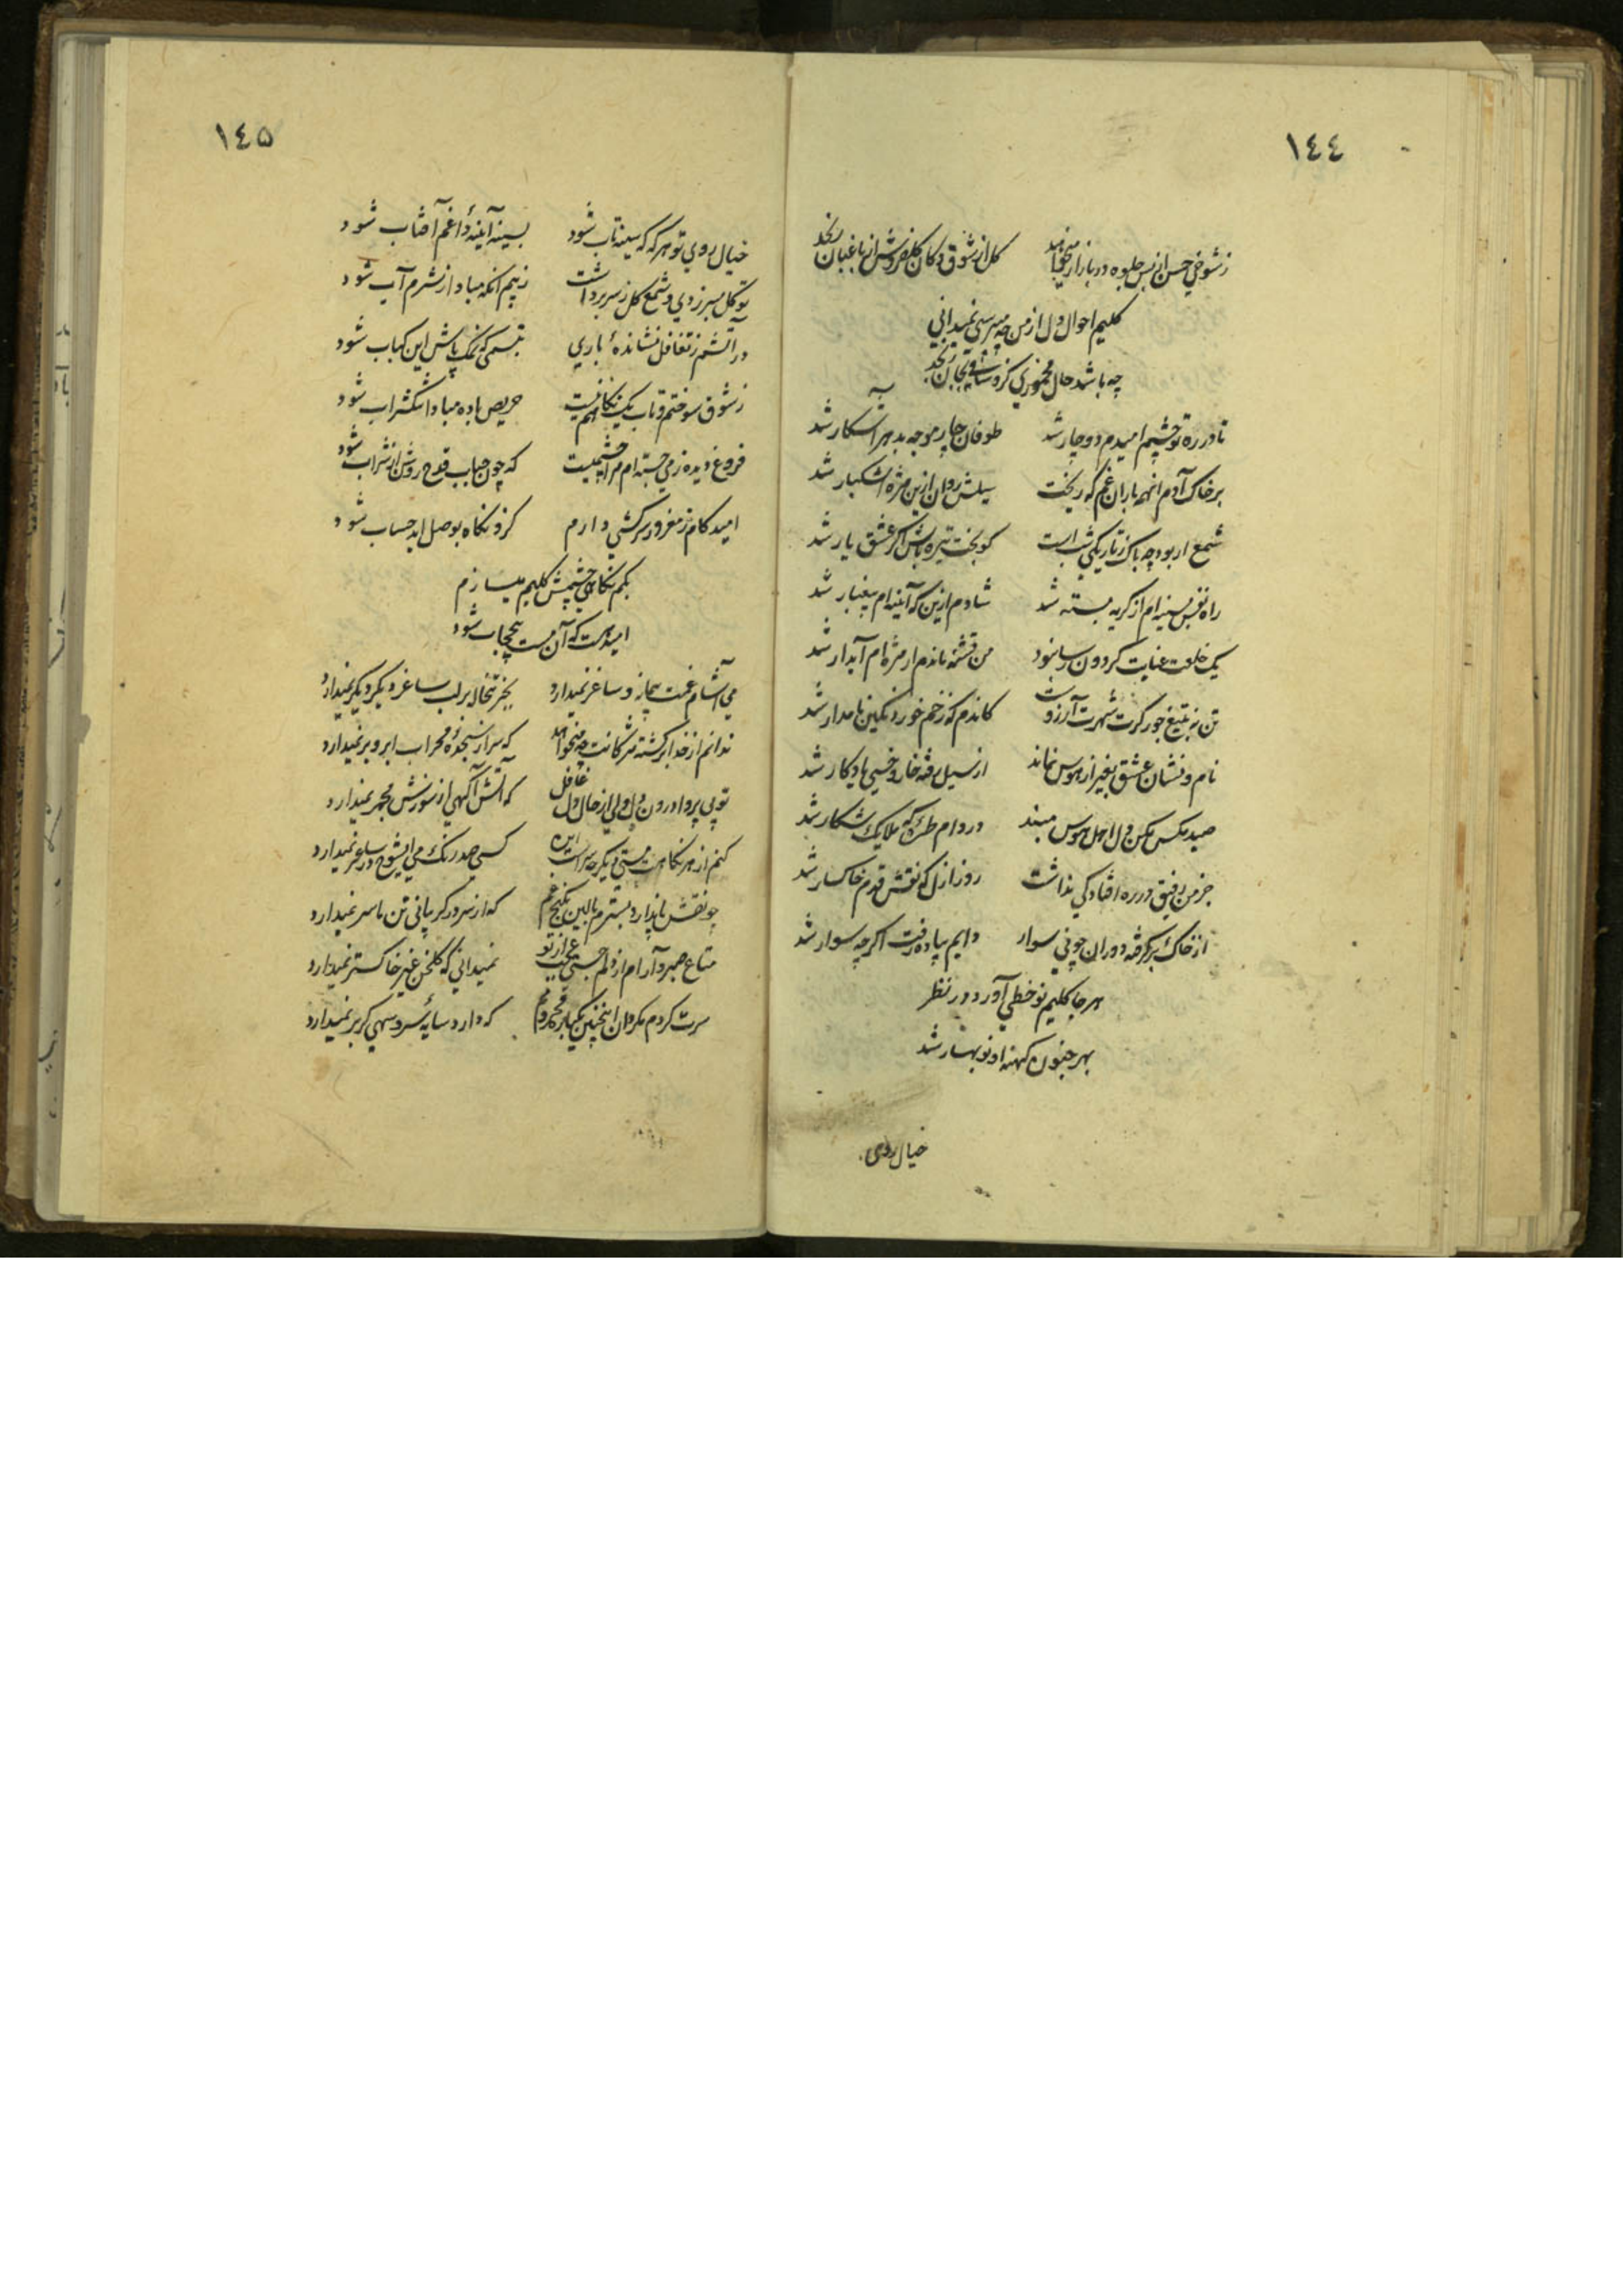 ١٤٤
ز شوخي حسن از بس جلوه در بازار ميخواهد
كل از شوق دكان كلفروش از باغبان رنجد
كليم احوال دل از من چه ميپرسي نميداني
چه باشد حال مخموري كز و ساقي بجان رنجد
تا در ره تو چشم اميدم دوچار شد
طوفان چار موجه بدهر آشكار شد
بر خاك آدم انهمه باران غم كه ريخت
سيلش روان ازين مژه اشكبار شد
شمع ار بود چه باك ز تاريكي شب است
كو بخت تيره باش اكر عشق يار شد
راه نفس بسينه ام از كريه بسته شد
شادم ازين كه آئينه ام بيغبار شد
يك خلعت عنايت كردون رسا نبود
من تشنه ماندم ار مژه ام آبدار شد
تن نه بتيغ جور كرت شهرت آرزوست
كاندم كه زخم خورد نكين نامدار شد
نام و نشان عشق بغير از هوس نماند
از سيل رفته خار و خسي يادكار شد
صيد مكس مكن دل اهل هوس مبند
در دام طره كه ملايك شكار شد
جز من رفيق در ره افتادكي نداشت
روز ازل كه نقش قدم خاكسار شد
از خاك بركرفته دوران چو ني سوار
دايم پياده رفت اكر چه سوار شد
هر جا كليم نو خطي آورد در نظر
بهر جنون كهنه او نو بهار شد
خيال روى
١٤٥
خيال روي تو هر كه كه سينه تاب شود
بسينه آينه داغم آفتاب شود
تو كل بسر زدي و شمع كل ز سر برداشت
ز بيم انكه مبادا ز شرم آب شود
در آتشم ز تغافل نشانده باري
تبسمي كه نمك پاش اين كباب شود
ز شوق سوختم و تاب يك نكاهم نيست
حريص باده مبادا تنكشراب شود
فروغ ديده ز مي جسته ام مرا چشميست
كه چون حباب قدح روشن از شراب شود
اميد كام ز مغرور سركشي دارم
كزو نكاه بوصل ابد حساب شود
بكم نكاهي چشمش كليم ميسازم
اميد هست كه آن مست بيحجاب شود
مي آشام غمت پيمانه و ساغر نميدارد
بجز تبخاله بر لب ساغر ديكر نميدارد
ندانم از خدا بركشته مژكانت چه ميخواهد
كه سر از سجده محراب ابرو بر نميدارد
تو بي پروا درون دل ولي از حال دل غافل
كه آتش آكهي از سوزش مجمر نميدارد
كنم از هر نكاهت مستي ديكر چه سراست اين
كسي صد رنك مي ايشوخ در ساغر نميدارد
چو نقش پا ندارد بسترم بالين بكنج غم
كه از سر در كريباني تن ما سر نميدارد
متاع صبر و آرام از دلم جستي عجب از تو
نميداني كه كلخن غير خاكستر نميدارد
سرت كردم مكردان اينچنين يكباره محرومم
كه دارد سايه سرو سهي كر بر نميدارد